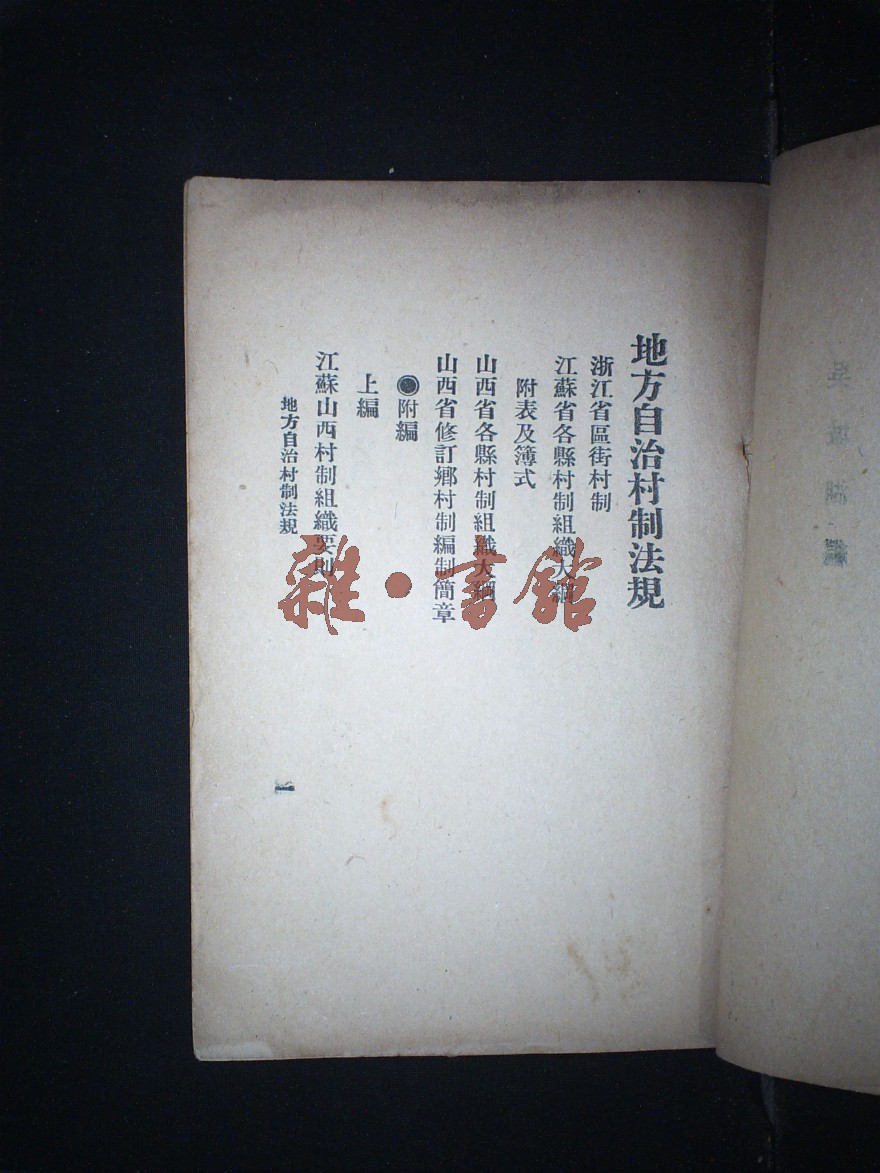 地方自治村制法規
浙江省區街村制
江蘇省各縣村制組織大綱
附表及簿式
山西省各縣村制組織大綱
山西省修訂鄉村制編制簡章
●附編
上編
江蘇山西村制組織要則
地方自治村制法規
一
雜·書館